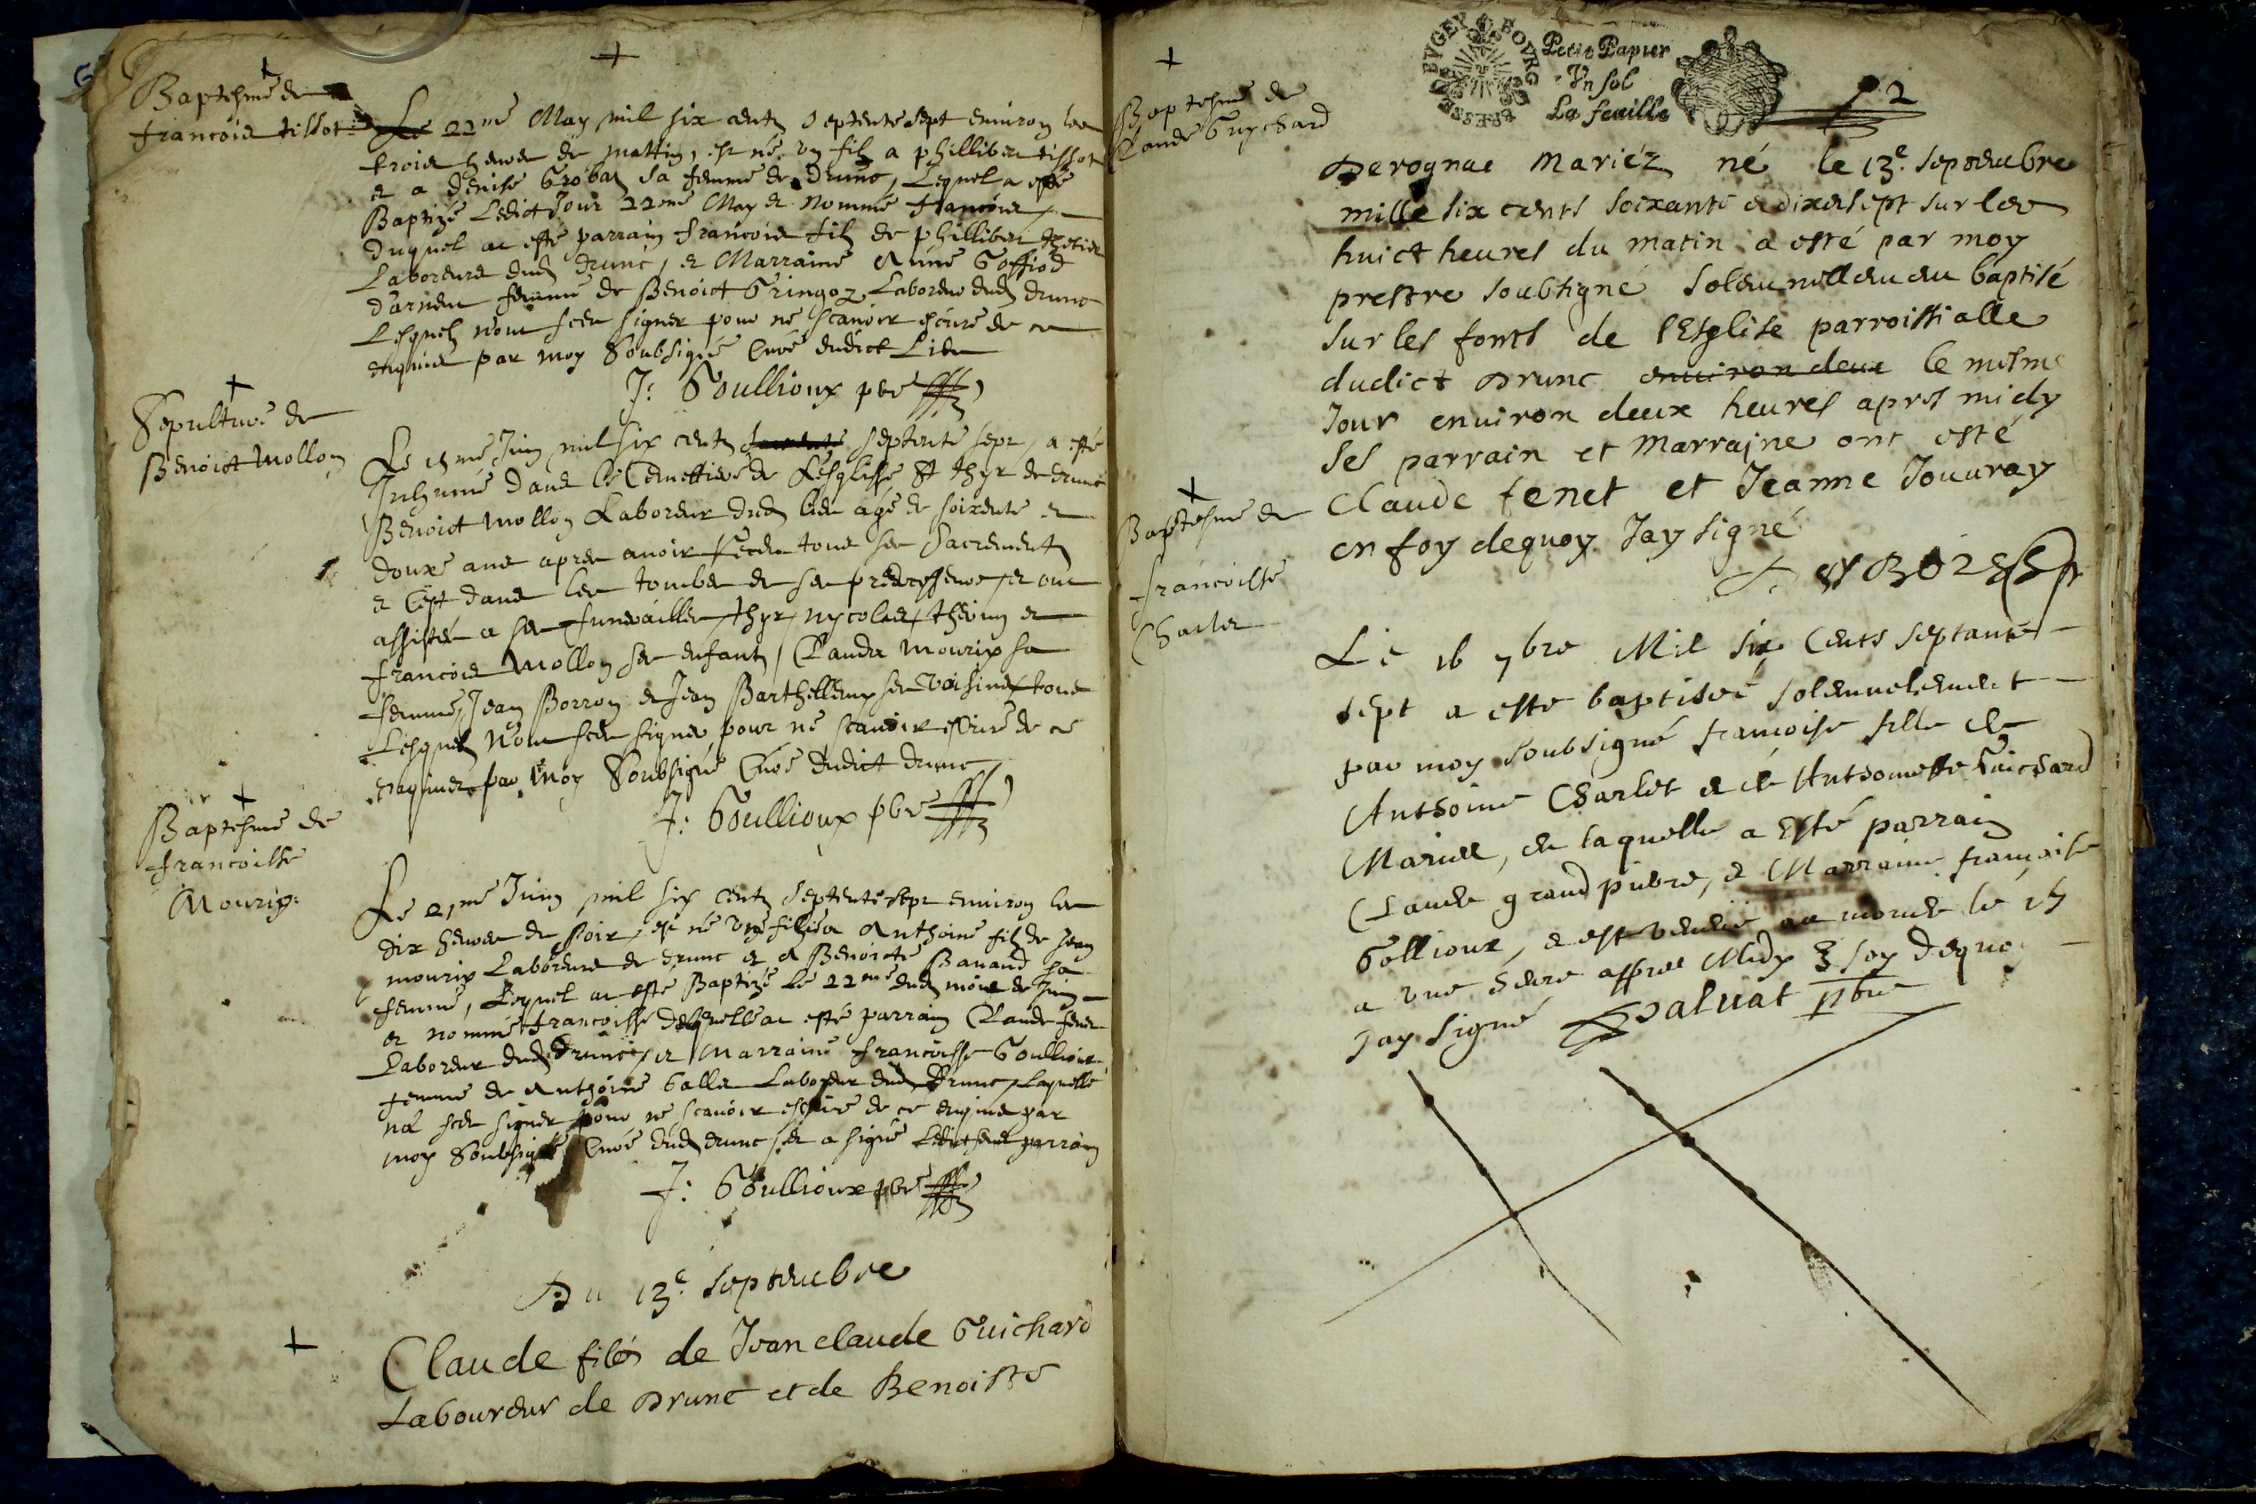 Baptesme de
francois tissot
Le 22me May mil six centz septente sept environ les
trois heures de mattin, est né un filz a phillibert tissot
et a denise Grobas sa femme de drunc, Lequel a esté
Baptizé Ledict Jour 22me May et nommé francois
duquel ae esté parrain francois filz de phillibert
Laboreur dud drunc, et Marraine Anne Goffiod
femme de Benoict Gringoz Laboreur dud drunc
Lesquelz n'ont sceu signer pour ne scavoir escrire de ce
enquis par moy Soubsigné Curé dudict Lieu
J: Goullioux pbre
Sepulture de
Benoict Mollon
Le me Juin mil six centz septente sept, a esté
Inhumé dans le Cemettiere de L'esglisse St thyr de drunc
Benoict Mollon Laboreur dud lieu agé de soixente et
douze ans apres avoir receu tous ses sacrementz
et c'est dans les tombes de ses predecesseurs, et ont
assistés a ses funerailles, thyr, nycolas, thevin et
francois Mollon ses enfantz, Clauda Mourix sa
femme, Jean Borron et Jean Barthellemy ses voisins tous
Lesquelz n'ont sceu signer pour ne scavoir escrire de ce
enquis par Moy Soubsigné Curé dudict drunc
J: Goullioux pbre
Baptesme de
francoisse
Mourix
Le 21me Juin mil six centz septente sept environ les
dix heures de soir, est né une fillie a Anthoine filz de Jean
mourix Laboreur de drunc et a Benoicte Banand sa
femme, Lequel ae esté Baptizé Le 22me dud mois de Juin
et nommé francoisse de laquelle ae esté parrain Claude fenet
Laboreur dud drunc, et Marraine francoisse Goullioux
femme de Anthoine Galle Laboreur dud drunc, Laquelle
na sceu signer pour ne scavoir escrire de ce enquis par
moy Soubsigné Curé dud drunc, et a signé Ledict parrain
J: Goullioux pbre
Du 13e septembre
Claude filz de Jean claude Guichard
Laboureur de Drunc et de Benoiste
Baptesme de
Claude Guychard
BOVRG
BVGEY
Petit Papier
Un sol
La feuille
2
Derognat Mariéz né le 13e septembre
mille six cents soixante et dixesept sur les
huict heures du matin a esté par moy
prestre soubsigné solemnellement baptisé
sur les fonts de l'Esglise parroissialle
dudict Drunc environ deux le mesme
Jour environ deux heures apres midy
ses parrain et marraine ont esté
Claude fenet et Jeanne Jouvray
en foy dequoy Jay signé
Baptesme de
francoisse
Charlet
Le 16 7bre Mil six Cents septante
sept a esté baptisée solemnelement
par moy soubsigné francoise fille de
Anthoine Charlet et de Anthoinette Guichard
Mariés, de laquelle a esté parrain
Claude grand pierre, et Marraine francoise
Gollioux, et est venue au monde le 15
a une heure appres Midy En foy dequoy
Jay signé Paluat pbre